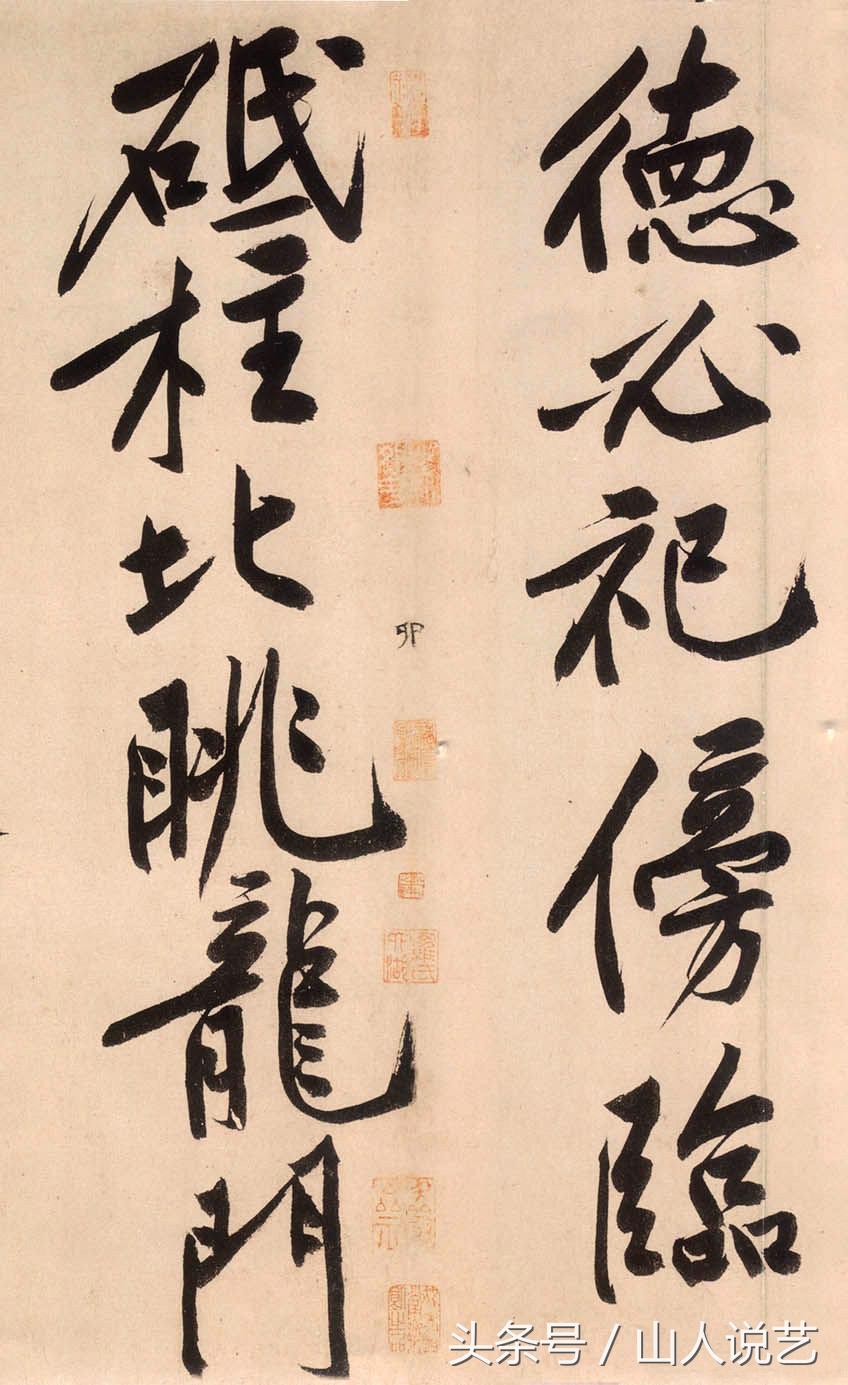 德必祀傍臨
砥柱北眺龍門
卯
头条号 / 山人说艺